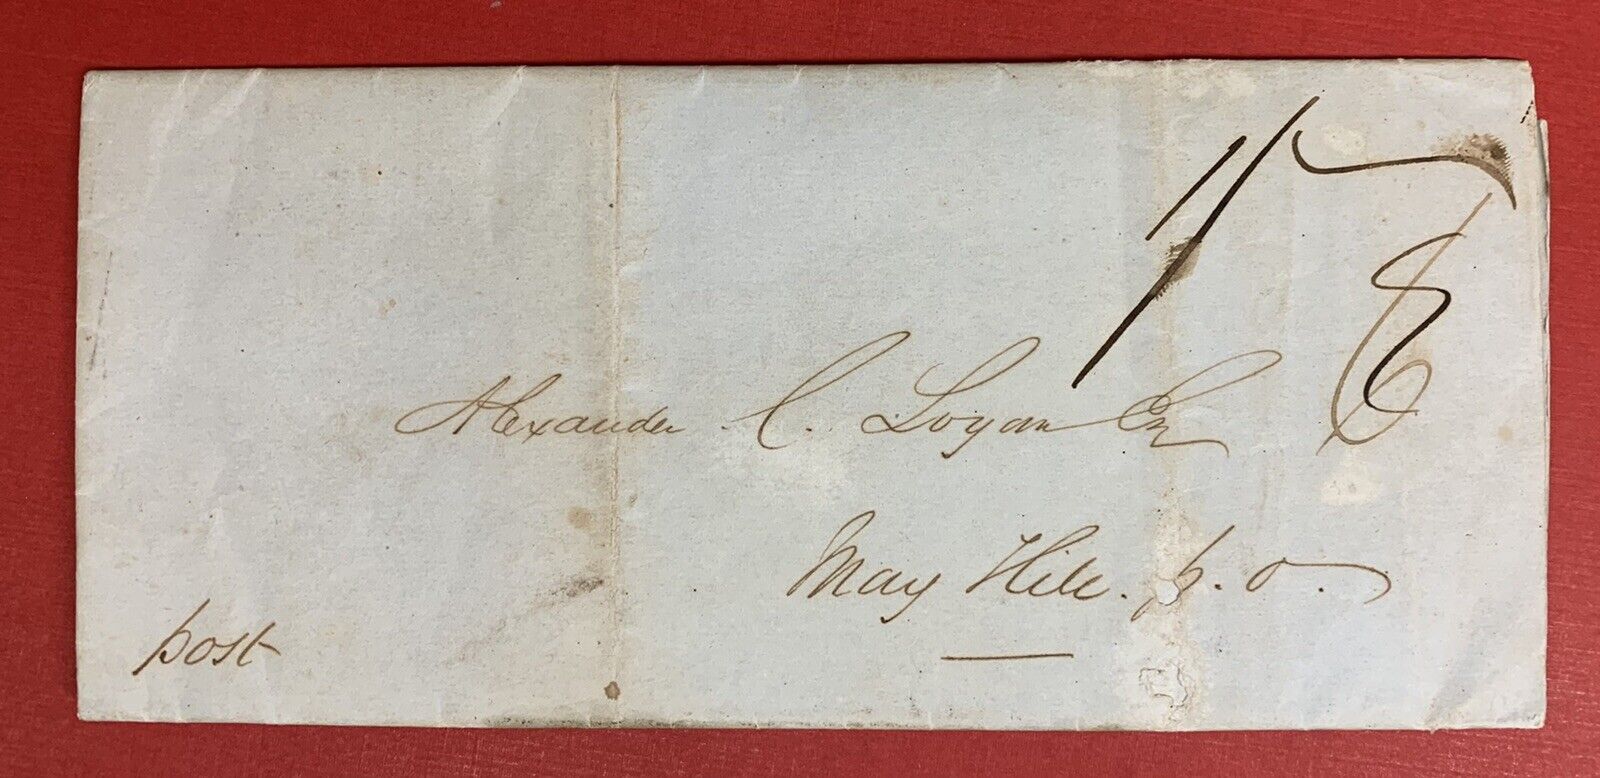 Alexander C. Logan Esq
May Hill. p. o.
post